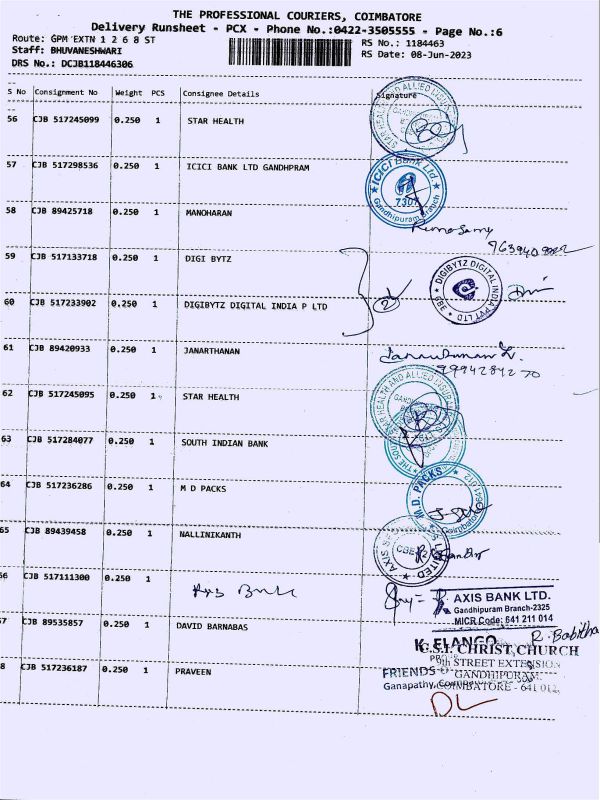 THE PROFESSIONAL COURIERS, COIMBATORE
Delivery Runsheet - PCX - Phone No.:0422-3505555 - Page No.:6
Route: GPM EXTN 1 2 6 8 ST
RS No.: 1184463
Staff: BHUVANESHWARI
RS Date: 08-Jun-2023
DRS No.: DCJB118446306
S No Consignment No Weight PCS Consignee Details Signature
56 CJB 517245099 0.250 1 STAR HEALTH
57 CJB 517298536 0.250 1 ICICI BANK LTD GANDHPRAM
ICICI Bank Ltd
Gandhipuram Branch
58 CJB 89425718 0.250 1 MANOHARAN
59 CJB 517133718 0.250 1 DIGI BYTZ
DIGIBYTZ DIGITAL INDIA PVT LTD
CBE
60 CJB 517233902 0.250 1 DIGIBYTZ DIGITAL INDIA P LTD
2
61 CJB 89420933 0.250 1 JANARTHANAN
62 CJB 517245095 0.250 1 STAR HEALTH
63 CJB 517284077 0.250 1 SOUTH INDIAN BANK
64 CJB 517236286 0.250 1 M D PACKS
M.D. PACKS
65 CJB 89439458 0.250 1 NALLINIKANTH
CBE
66 CJB 517111300 0.250 1
AXIS BANK LTD.
Gandhipuram Branch-2325
MICR Code: 641 211 014
67 CJB 89535857 0.250 1 DAVID BARNABAS
R. Babitha
K. ELANGO
C.S.I. CHRIST CHURCH
9th STREET EXTENSION
68 CJB 517236187 0.250 1 PRAVEEN
FRIENDS
GANDHIPURAM
Ganapathy,
COIMBATORE - 641 012.